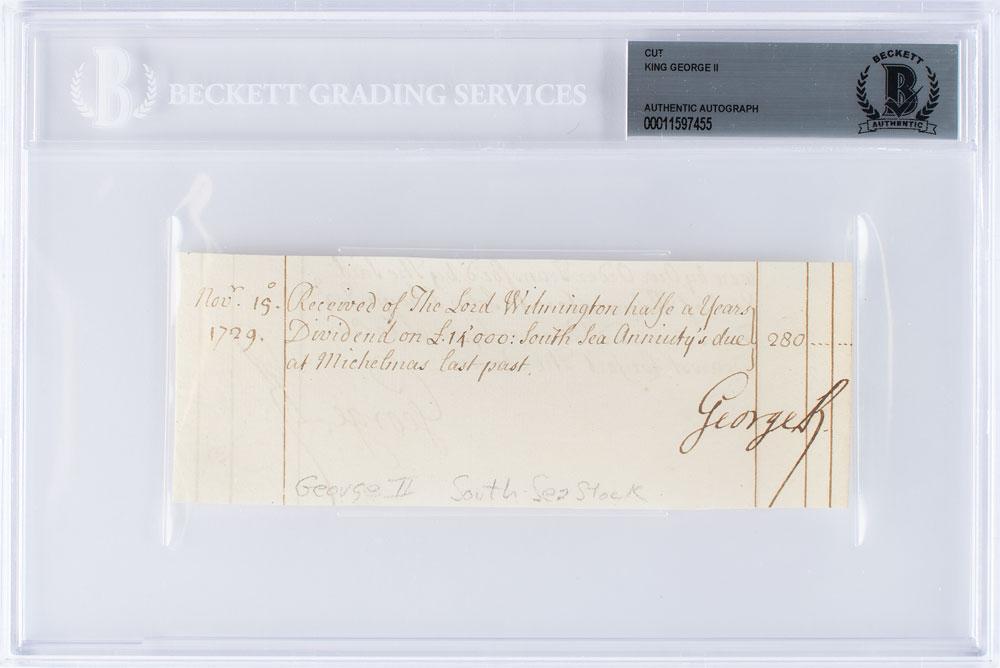 BECKETT GRADING SERVICES
CUT
KING GEORGE II
AUTHENTIC AUTOGRAPH
00011597455
BECKETT
B
AUTHENTIC
Novr. 15o.
1729.
Received of The Lord Wilmington halfe a Years
Dividend on £.14000: South Sea Anniuty's due
at Michelmas last past.
280
George R
George II South Sea Stock